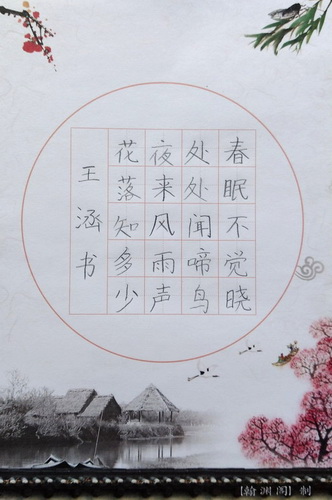 春眠不觉晓
处处闻啼鸟
夜来风雨声
花落知多少
王涵书
【翰渊阁】制